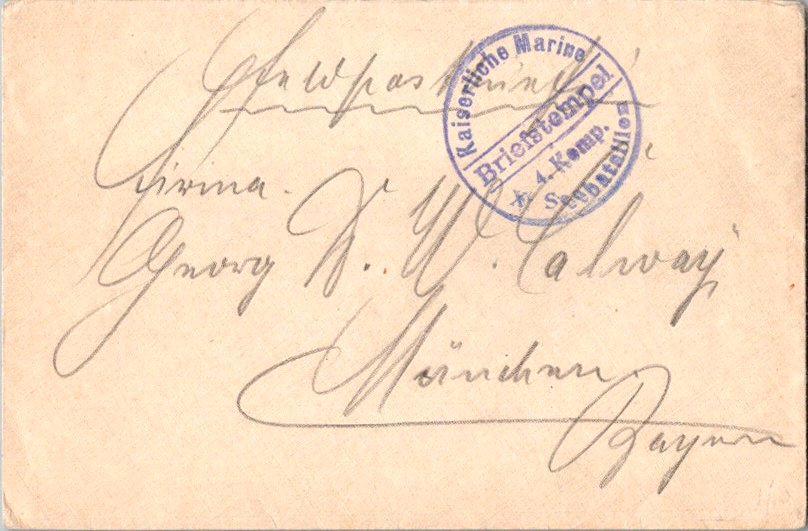 Feldpostbrief
Kaiserliche Marine
Briefstempel
4. Komp.
Seebataillon
Firma
Georg D. W. Callwey
München
Bayern